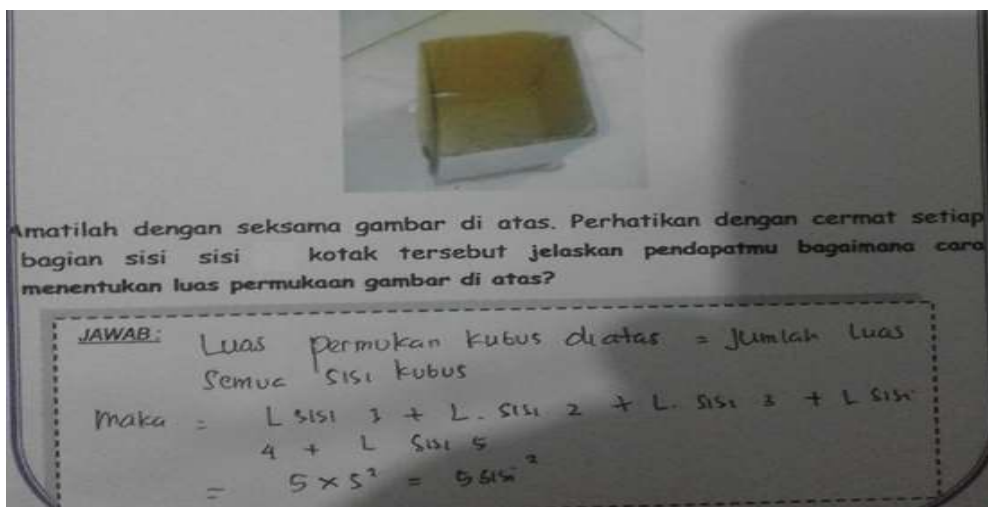 Amatilah dengan seksama gambar di atas. Perhatikan dengan cermat setiap
bagian sisi sisi kotak tersebut jelaskan pendapatmu bagaimana cara
menentukan luas permukaan gambar di atas?
JAWAB: Luas permukan kubus diatas = Jumlah luas
Semua sisi kubus
maka = L sisi 3 + L. sisi 2 + L. sisi 3 + L sisi
4 + L sisi 5
= 5 × s² = 5 sisi²